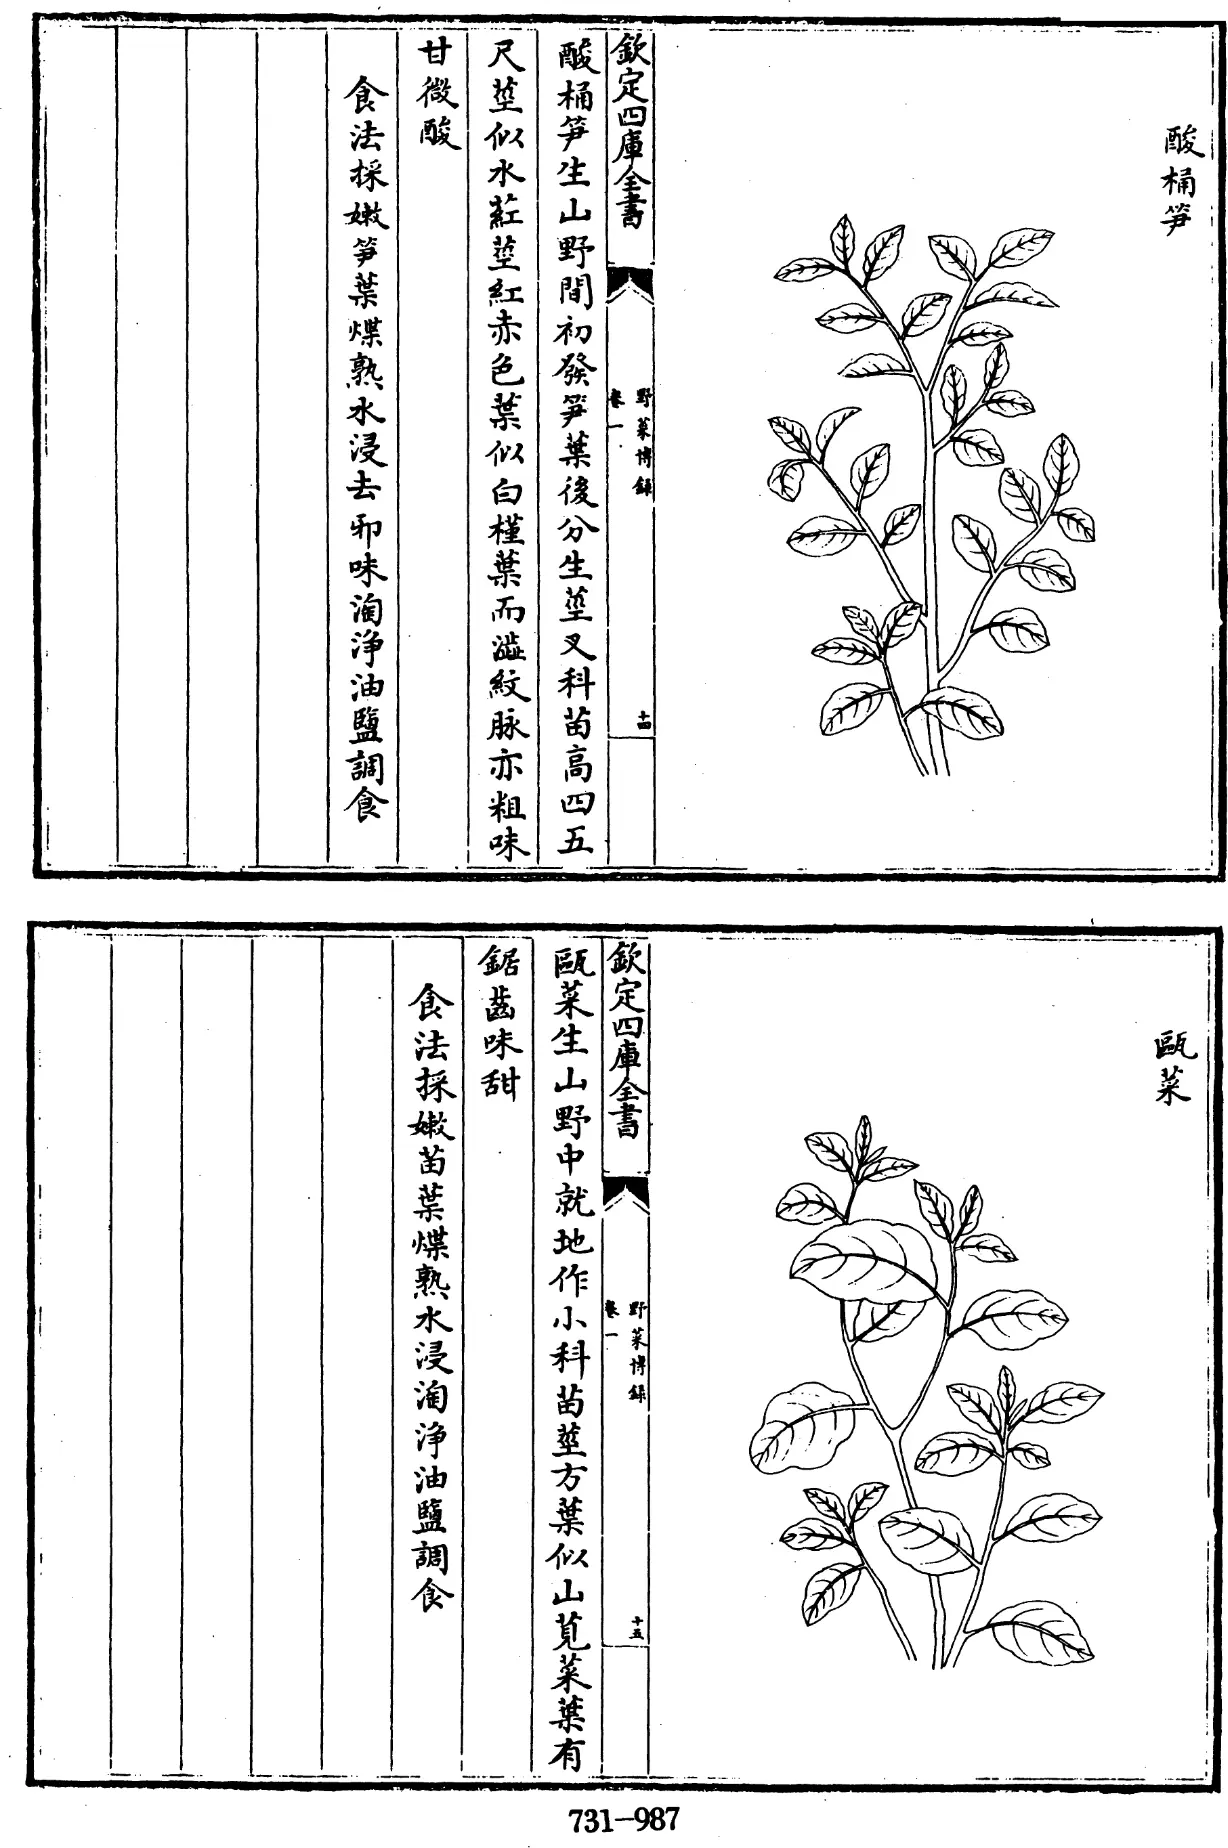 酸桶笋
欽定四庫全書
野菜博録
卷一
十四
酸桶笋生山野間初發笋葉後分生莖叉科苗高四五
尺莖似水葒莖紅赤色葉似白槿葉而澁紋脉亦粗味
甘微酸
食法採嫩笋葉煠熟水浸去邪味淘淨油鹽調食
甌菜
欽定四庫全書
野菜博録
卷一
十五
甌菜生山野中就地作小科苗莖方葉似山莧菜葉有
鋸齒味甜
食法採嫩苗葉煠熟水浸淘淨油鹽調食
731-987